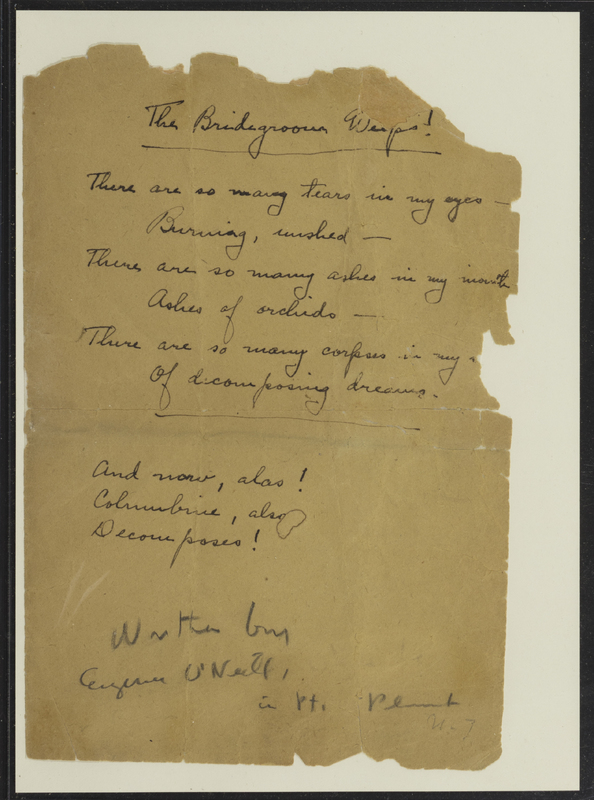 The Bridegroom Weeps!
There are so many tears in my eyes —
Burning, unshed —
There are so many ashes in my mouth
Ashes of orchids —
There are so many corpses in my
Of decomposing dreams.
And now, alas!
Columbine, also
Decomposes!
Written by
Eugene O'Neill,
in Pt. Pleasant
N. J.